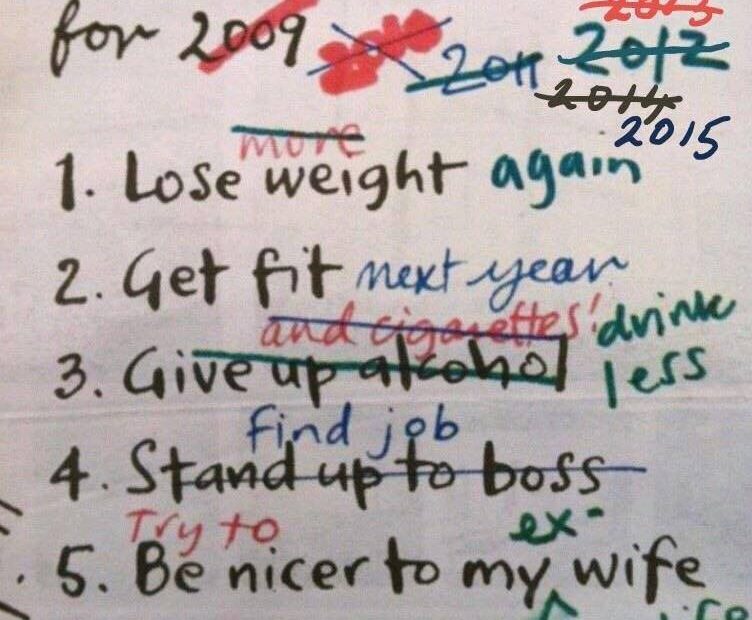 for 2009 2011 2012 2013
2014
2015
more
1. Lose weight again
2. Get fit next year
and cigarettes! drink
3. Give up alcohol less
find job
4. Stand up to boss
Try to ex-
5. Be nicer to my wife